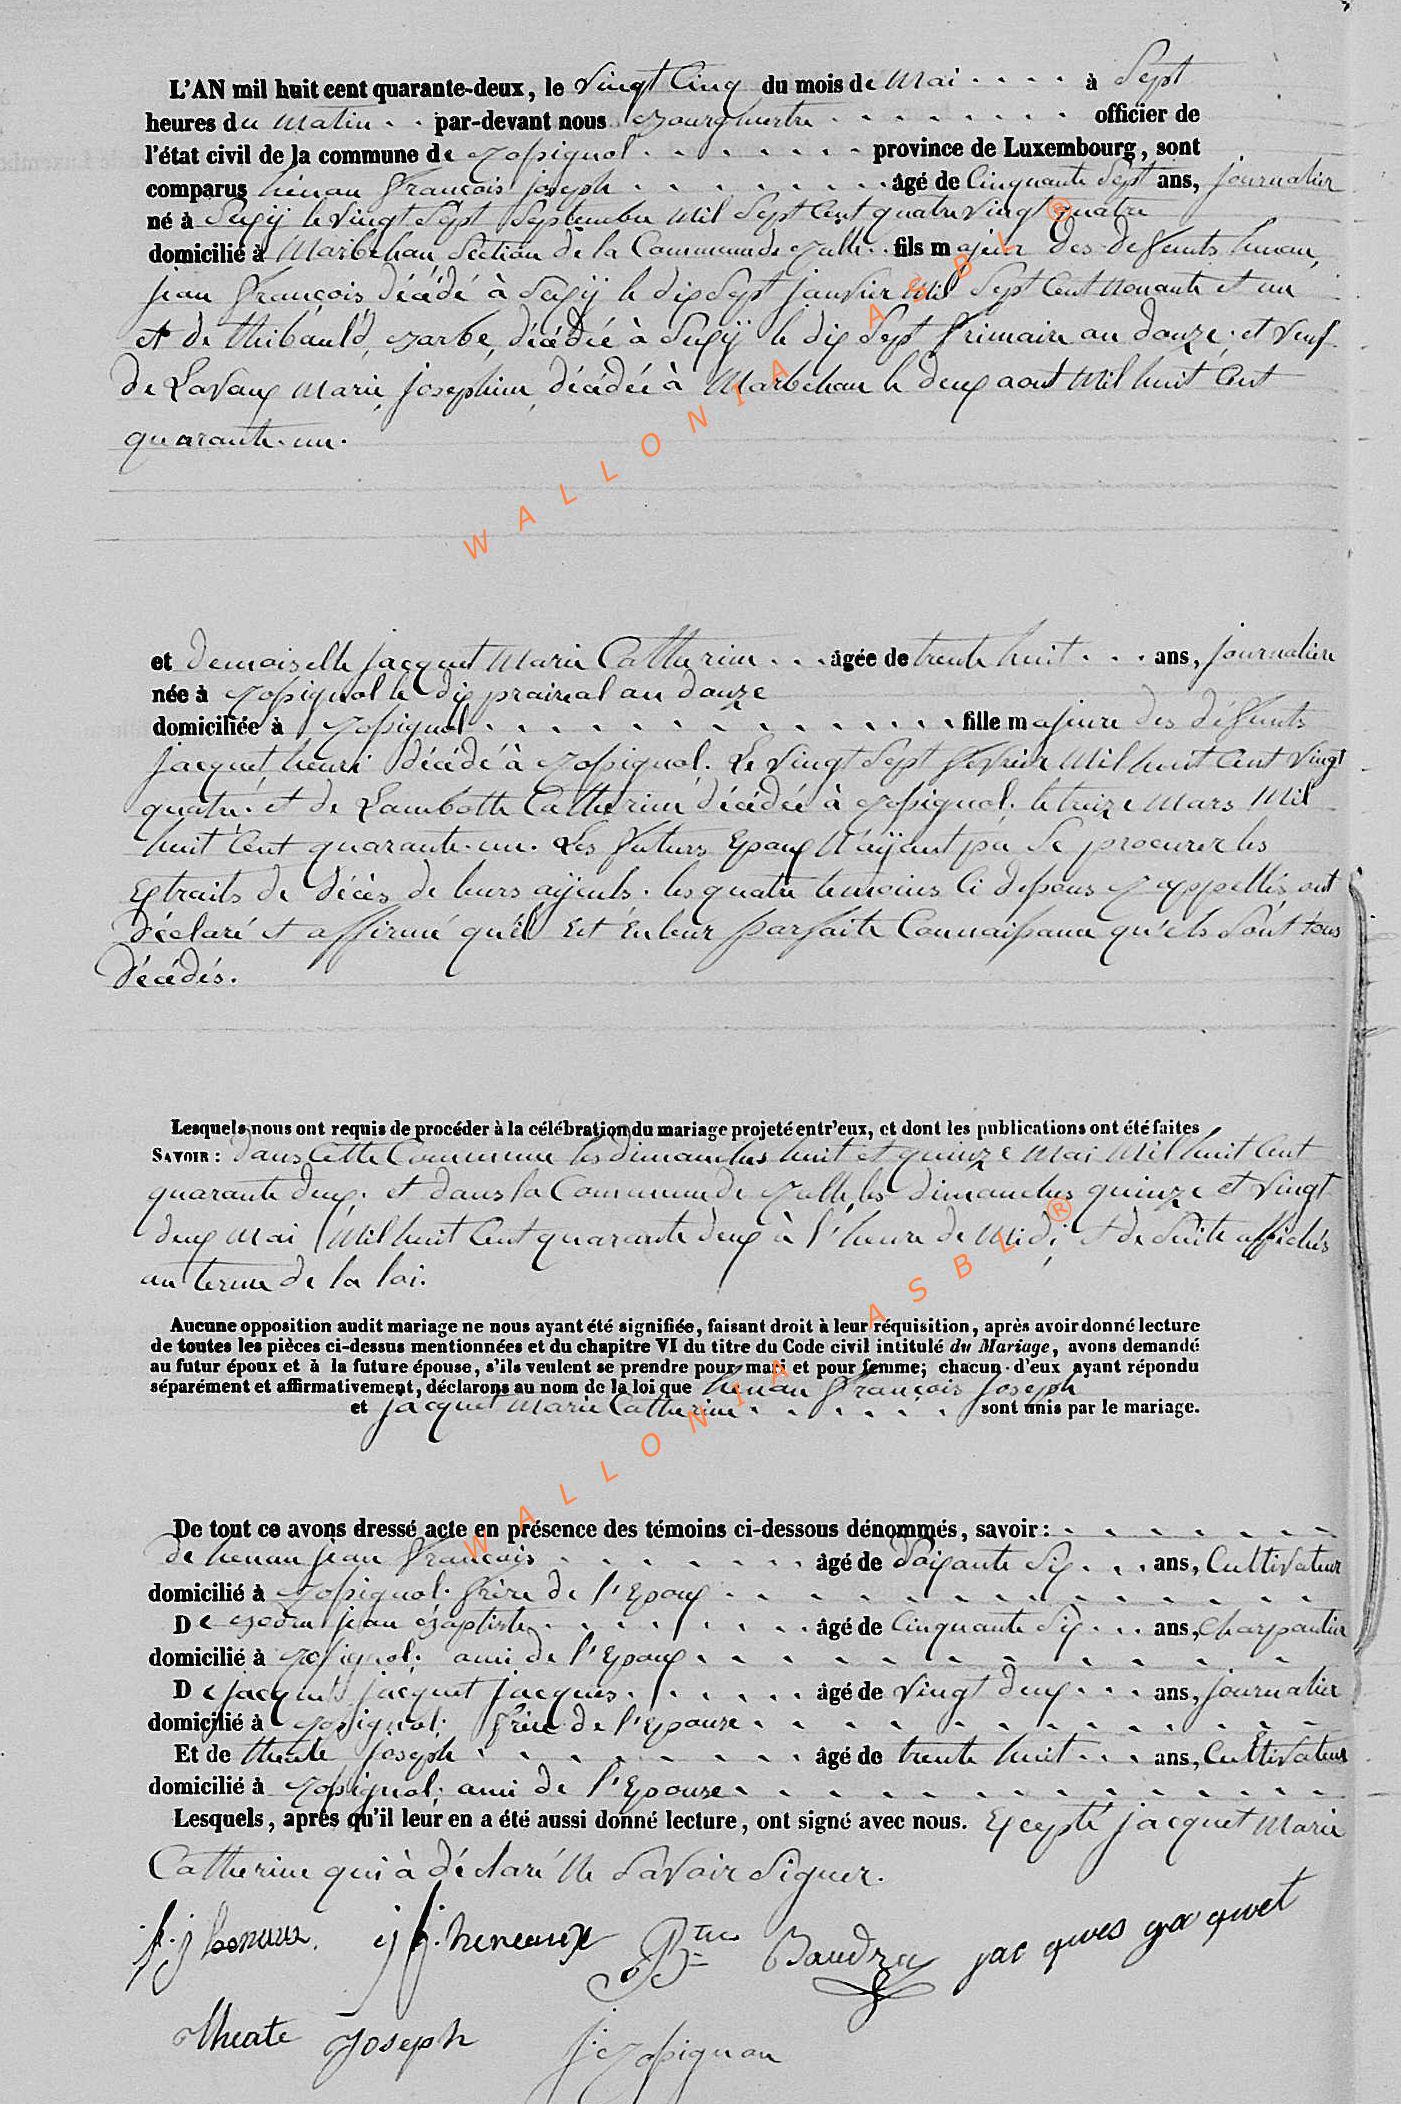 L'AN mil huit cent quarante-deux, le vingt Cinq du mois de Mai . . . . à Sept
heures du Matin . . par-devant nous Bourghmestre . . . . . . . . officier de
l'état civil de la commune de Rossignol . . . . . . . province de Luxembourg, sont
comparus henau François joseph . . . . . . . . âgé de Cinquante Sept ans, journalier
né à Suxÿ le vingt Sept Septembre Mil Sept Cent quatre vingt quatre
domicilié à Marbehan Section de la Commune de Rulle . . fils majeur des defunts henau,
jean François décédé à Suxÿ le dix Sept janvier Mil Sept Cent Nonante et un
et de thibauld, Barbe, décédée à Suxÿ le dix Sept frimaire an douze . et veuf
de Lavaux Marie, josephine, décédée à Marbehan le deux aout Mil huit Cent
quarante-un.
et demoiselle jacquet Marie Catherine . . . âgée de trente huit . . . ans, journalière
née à Rossignol le dix prairéal an douze
domiciliée à Rossignol . . . . . . . . . . . . . . fille majeure des défunts
jacquet henri décédé à Rossignol . Le vingt Sept fevrier Mil huit Cent vingt
quatre . et de Lambotte Catherine décédée à Rossignol . le treize Mars Mil
huit Cent quarante-un. Les futurs Epoux N'ayant pu Se procurer les
Extraits de décès de leurs ayeuls . les quatre temoins Ci dessous Rappellés ont
déclaré et affirmé qu'il Est En leur parfaite Connaissance qu'els Sont tous
décédés.
Lesquels nous ont requis de procéder à la célébration du mariage projeté entr'eux, et dont les publications ont été faites
SAVOIR : dans Cette Commune les dimanches huit et quinze Mai Mil huit Cent
quarante deux . et dans la Commune de Rulle les dimanches quinze et vingt
deux Mai Mil huit Cent quarante deux à l'heure de Midi, et de Suite affichés
au terme de la loi.
Aucune opposition audit mariage ne nous ayant été signifiée, faisant droit à leur réquisition, après avoir donné lecture
de toutes les pièces ci-dessus mentionnées et du chapitre VI du titre du Code civil intitulé du Mariage, avons demandé
au futur époux et à la future épouse, s'ils veulent se prendre pour mari et pour femme; chacun d'eux ayant répondu
séparément et affirmativement, déclarons au nom de la loi que henau François Joseph
et jacquet Marie Catherine . . . . . . . sont unis par le mariage.
De tout ce avons dressé acte en présence des témoins ci-dessous dénommés, savoir : . . . . . . .
de henau jean François . . . . . . . âgé de Soixante Six . . . ans, Cultivateur
domicilié à Rossignol . frère de l'Epoux . . . . . . . . . . . .
De jean Baptiste . . . . . . . . âgé de Cinquante Six . . . ans, Charpentier
domicilié à Rossignol . ami de l'Epoux . . . . . . . . . . . .
De jacquet jacques . . . . . . âgé de vingt deux . . . ans, journalier
domicilié à Rossignol . frère de l'Epouse . . . . . . . . . . .
Et de theate joseph . . . . . . . . . âgé de trente huit . . . ans, Cultivateur
domicilié à Rossignol . ami de l'Epouse . . . . . . . . . . .
Lesquels, après qu'il leur en a été aussi donné lecture, ont signé avec nous. Excepté jacquet Marie
Catherine qui à déclaré Ne Savoir Signer.
jacques jacquet
theate Joseph
WALLONIA ASBL ®
WALLONIA ASBL ®